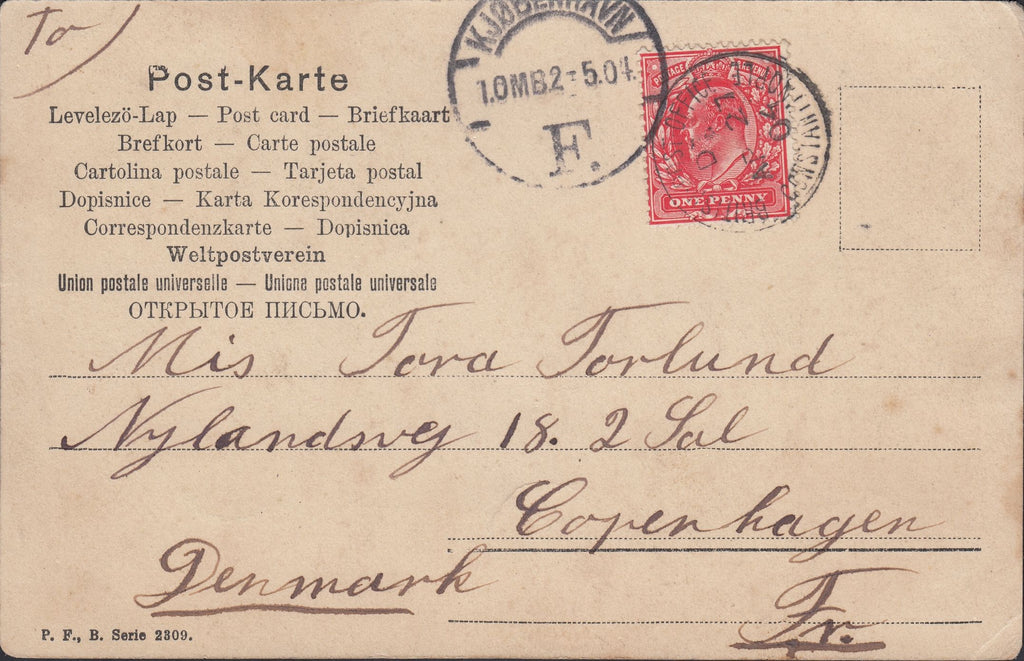 To
Post-Karte
Levelező-Lap — Post card — Briefkaart
Brefkort — Carte postale
Cartolina postale — Tarjeta postal
Dopisnice — Karta Korespondencyjna
Correspondenzkarte — Dopisnica
Weltpostverein
Union postale universelle — Unione postale universale
ОТКРЫТОЕ ПИСЬМО.
KJØBENHAVN
1.OMB.2-5.04.
F.
POSTAGE
ONE PENNY
Mis Tora Torlund
Nylandsvej 18. 2 Sal
Copenhagen
Denmark
Fr.
P. F., B. Serie 2309.